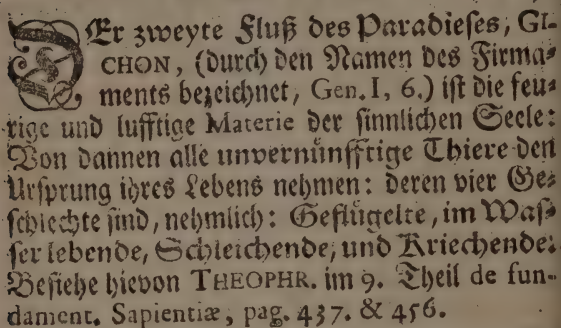 DEr zweyte Fluß des Paradieses, GI-
CHON, (durch den Namen des Firma-
ments bezeichnet, Gen. I, 6.) ist die feu-
rige und lufftige Materie der sinnlichen Seele:
Von dannen alle unvernünfftige Thiere den
Ursprung ihres Lebens nehmen: deren vier Ge-
schlechte sind, nehmlich: Geflügelte, im Was-
ser lebende, Schleichende, und Kriechende:
Besiehe hievon THEOPHR. im 9. Theil de fun-
dament. Sapientiæ, pag. 437. & 456.